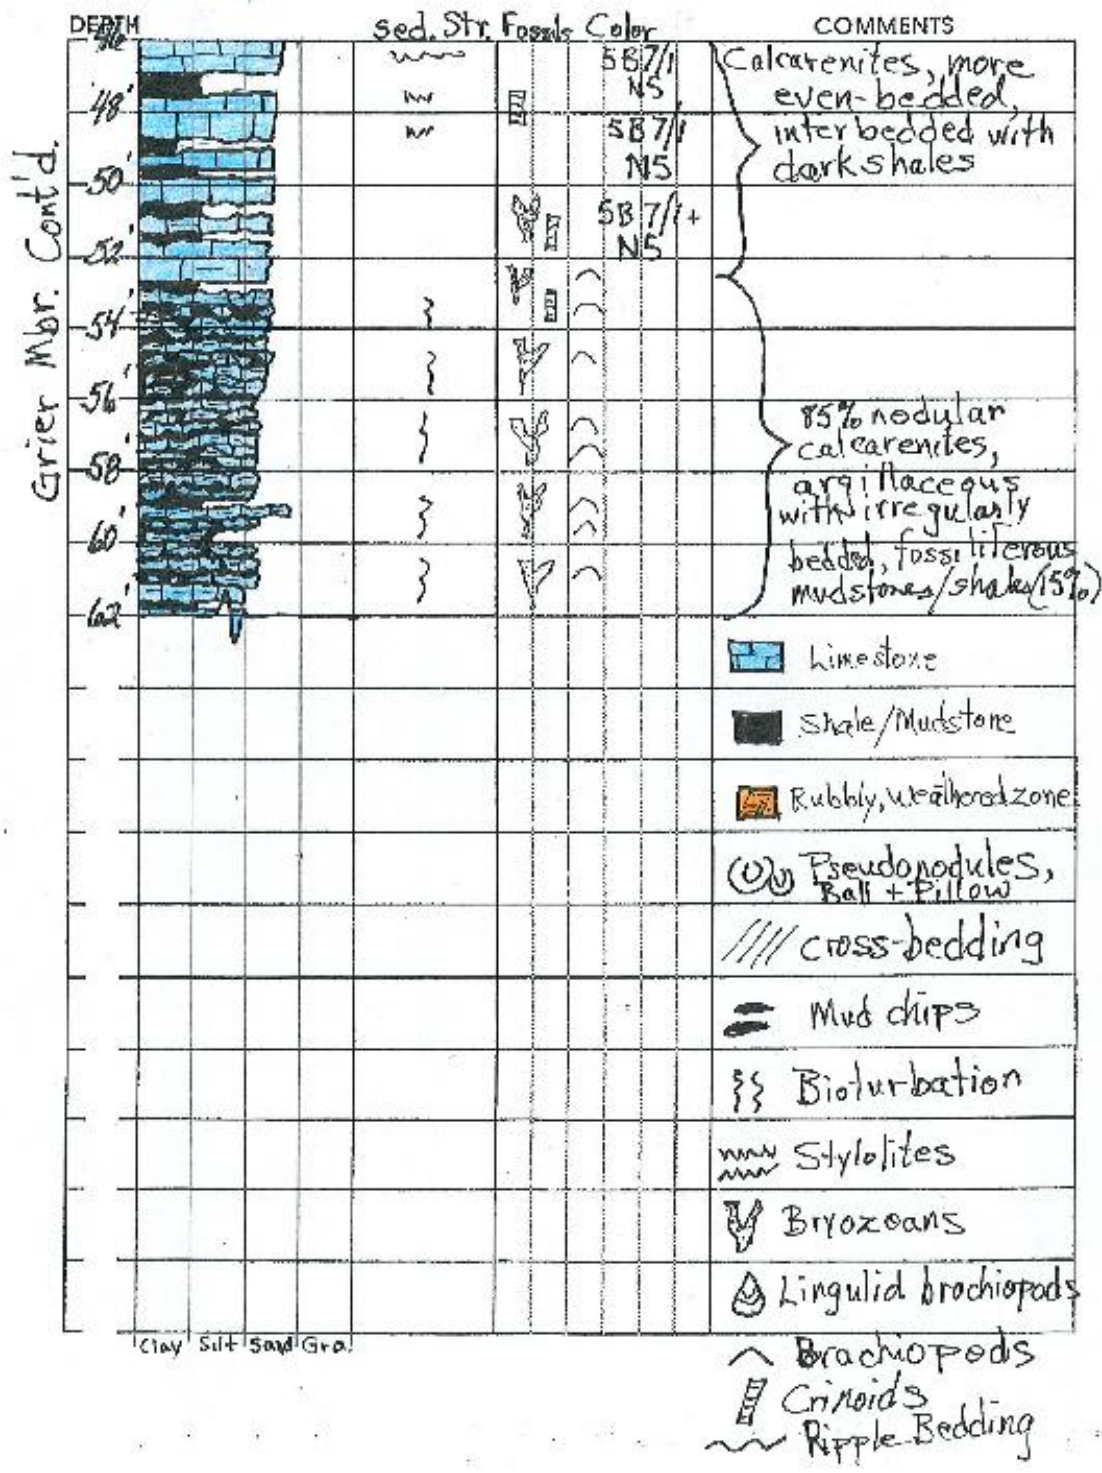 DEPTH sed. Str. Fossils Color COMMENTS
46'
48'
50'
52'
54'
56'
58'
60'
62'
Grier Mbr. Cont'd.
5B7/1
N5
5B7/1
N5
5B7/1+
N5
Calcarenites, more
even-bedded,
interbedded with
dark shales
85% nodular
calcarenites,
argillaceous
with irregularly
bedded, fossiliferous
mudstones/shales (15%)
Limestone
Shale/Mudstone
Rubbly, weathered zone
Pseudonodules,
Ball + Pillow
cross-bedding
Mud chips
Bioturbation
Stylolites
Bryozoans
Lingulid brachiopods
Clay Silt Sand Gra.
Brachiopods
Crinoids
Ripple Bedding